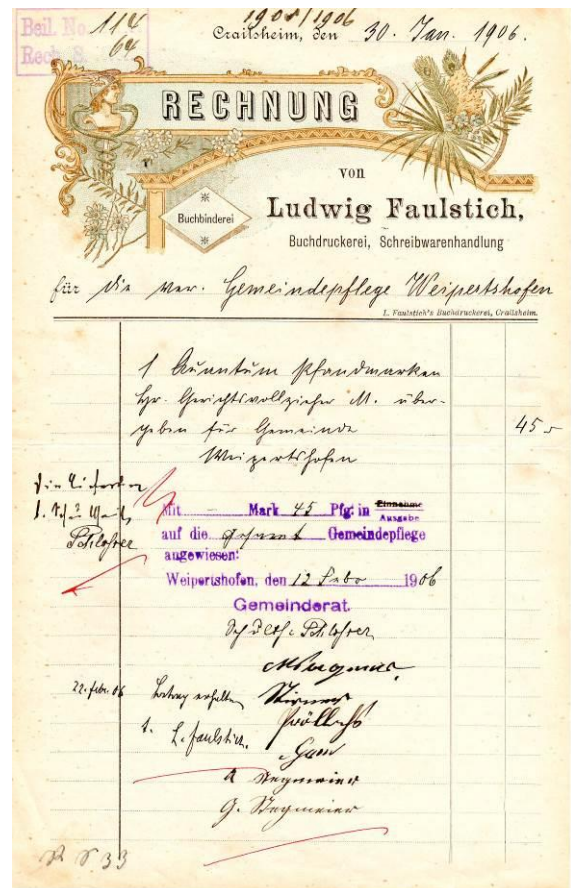 Beil. No. 114
Rech. S. 64
1905/1906
Crailsheim, den 30. Jan. 1906.
RECHNUNG
von
Ludwig Faulstich,
Buchbinderei
Buchdruckerei, Schreibwarenhandlung
für die ver. Gemeindepflege Weipertshofen
L. Faulstich's Buchdruckerei, Crailsheim.
1 Quantum Pfandmarken
Hr. Gerichtsvollzieher M. über-
geben für Gemeinde
45
Weipertshofen
Schlosser
Mit Mark 45 Pfg. in Einnahme
Ausgabe
auf die Gemeindepflege
angewiesen:
Weipertshofen, den 12 Febr 1906
Gemeinderat.
Schulth.
22. Febr. 06 Betrag erhalten
L. Faulstich.
Stegmeier
G. Stegmeier
33